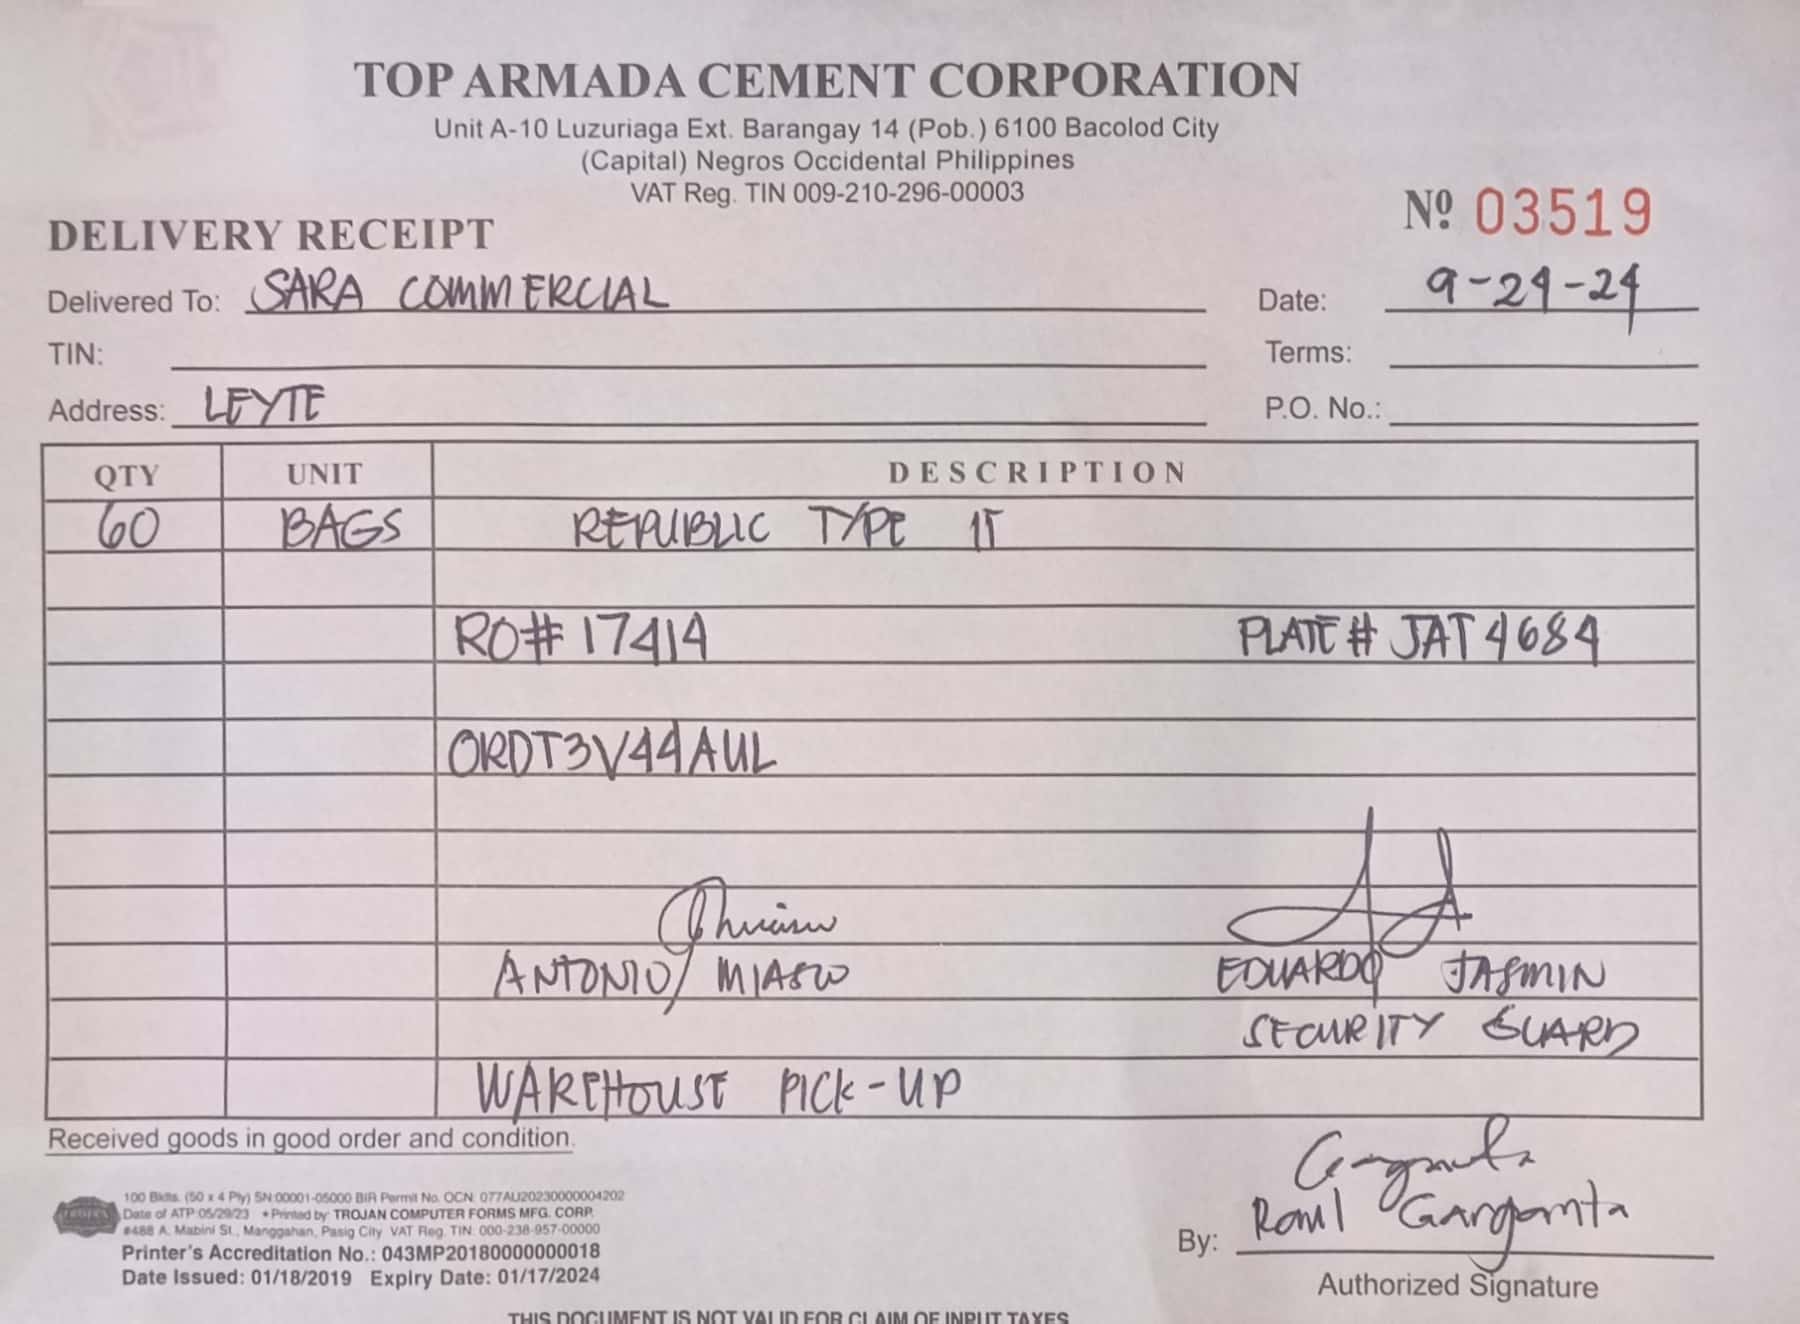 TOP ARMADA CEMENT CORPORATION
Unit A-10 Luzuriaga Ext. Barangay 14 (Pob.) 6100 Bacolod City
(Capital) Negros Occidental Philippines
VAT Reg. TIN 009-210-296-00003
Nº 03519
DELIVERY RECEIPT
Delivered To: SARA COMMERCIAL
Date: 9-24-24
TIN:
Terms:
Address: LEYTE
P.O. No.:
QTY UNIT DESCRIPTION
60 BAGS REPUBLIC TYPE 1T
RO# 17414 PLATE # JAT 4684
ORDT3V44AUL
ANTONIO MIASCO
EDUARDO JASMIN
SECURITY GUARD
WAREHOUSE PICK-UP
Received goods in good order and condition.
100 Bklts. (50 x 4 Ply) SN:00001-05000 BIR Permit No. OCN: 077AU20230000004202
Date of ATP:05/29/23 • Printed by: TROJAN COMPUTER FORMS MFG. CORP.
#488 A. Mabini St., Manggahan, Pasig City VAT Reg. TIN: 000-238-957-00000
Printer's Accreditation No.: 043MP20180000000018
Date Issued: 01/18/2019 Expiry Date: 01/17/2024
Raul Garganta
By:
Authorized Signature
THIS DOCUMENT IS NOT VALID FOR CLAIM OF INPUT TAXES